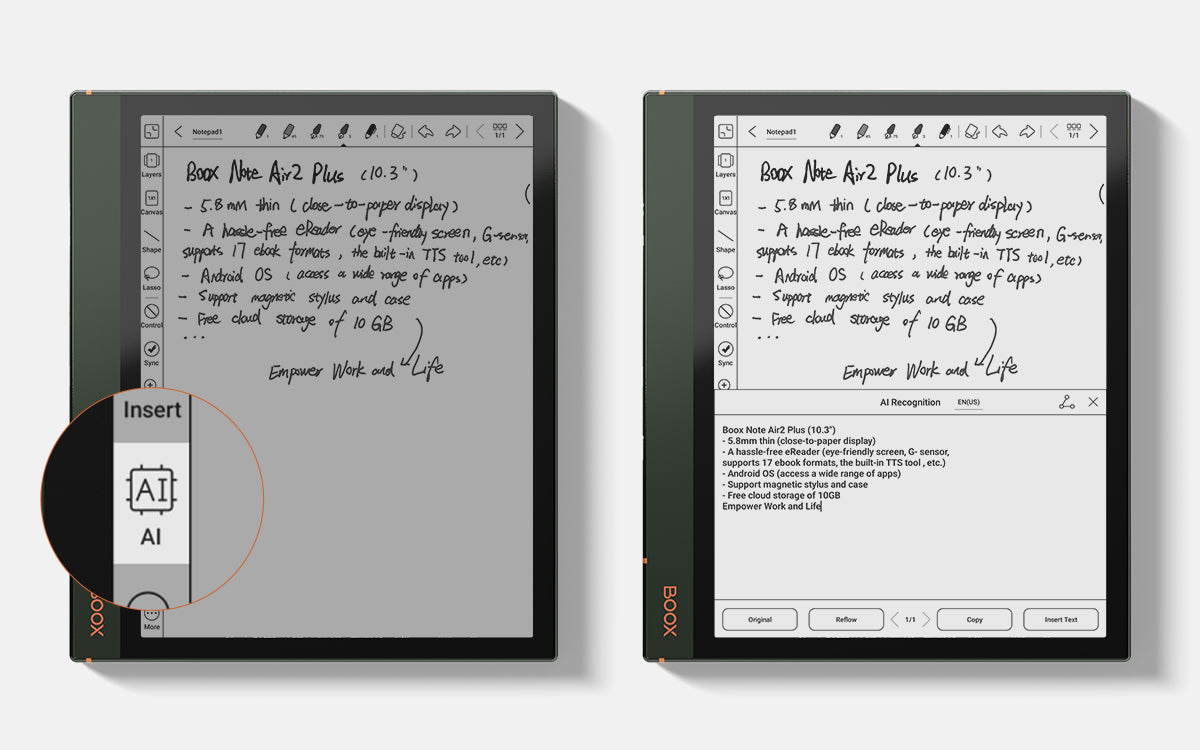 Notepad1
1/1
Layers
Canvas
Shape
Lasso
Control
Sync
Boox Note Air2 Plus (10.3")
- 5.8 mm thin (close-to-paper display)
- A hassle-free eReader (eye-friendly screen, G-sensor,
supports 17 ebook formats, the built-in TTS tool, etc)
- Android OS (access a wide range of apps)
- Support magnetic stylus and case
- Free cloud storage of 10 GB
...
Empower Work and Life
Insert
AI
AI
More
BOOX
Notepad1
1/1
Layers
Canvas
Shape
Lasso
Control
Sync
Boox Note Air2 Plus (10.3")
- 5.8 mm thin (close-to-paper display)
- A hassle-free eReader (eye-friendly screen, G-sensor,
supports 17 ebook formats, the built-in TTS tool, etc)
- Android OS (access a wide range of apps)
- Support magnetic stylus and case
- Free cloud storage of 10 GB
...
Empower Work and Life
AI Recognition EN(US)
Boox Note Air2 Plus (10.3")
- 5.8mm thin (close-to-paper display)
- A hassle-free eReader (eye-friendly screen, G- sensor,
supports 17 ebook formats, the built-in TTS tool , etc.)
- Android OS (access a wide range of apps)
- Support magnetic stylus and case
- Free cloud storage of 10GB
Empower Work and Life
Original Reflow 1/1 Copy Insert Text
BOOX